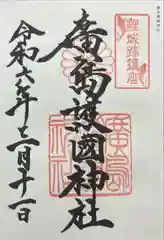 鯉城跡鎮座
廣島護國神社
令和六年十二月十一日